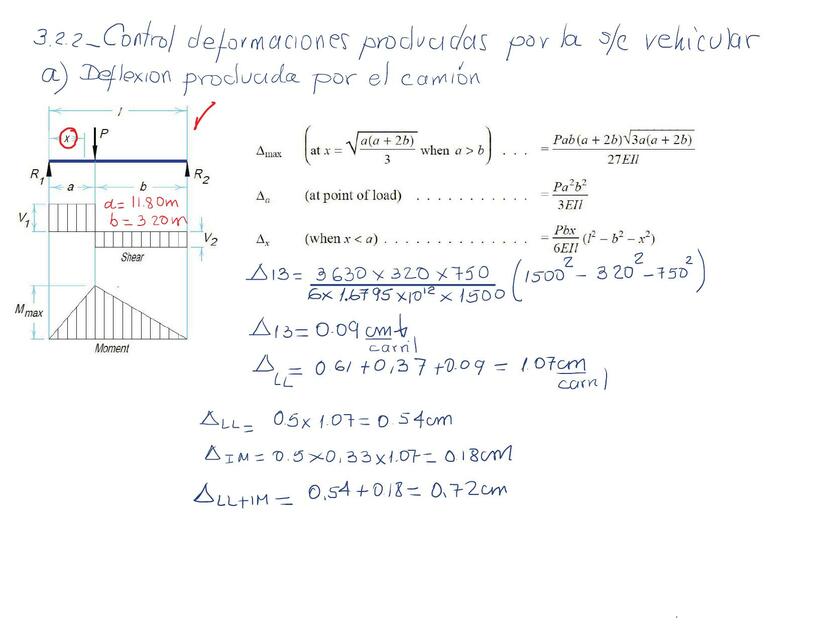 3.2.2_ Control deformaciones producidas por la s/c vehicular
a) Deflexion producida por el camión
l
x P
R1 R2
a b
a = 11.80m
b = 3.20m
V1 V2
Shear
Mmax
Moment
Δmax (at x = √(a(a + 2b)/3) when a > b) . . . = Pab(a + 2b)√(3a(a + 2b)) / 27EIl
Δa (at point of load) . . . . . . . . . . . = Pa²b² / 3EIl
Δx (when x < a) . . . . . . . . . . . . . = Pbx / 6EIl (l² – b² – x²)
Δ13 = 3630 x 320 x 750 / 6 x 1.6795 x 10¹² x 1500 (1500² - 320² - 750²)
Δ13 = 0.09 cm/carril
ΔLL = 0.61 + 0,37 + 0.09 = 1.07cm/carril
ΔLL = 0.5 x 1.07 = 0.54cm
ΔIM = 0.5 x 0,33 x 1.07 = 0.18cm
ΔLL+IM = 0,54 + 0,18 = 0,72cm